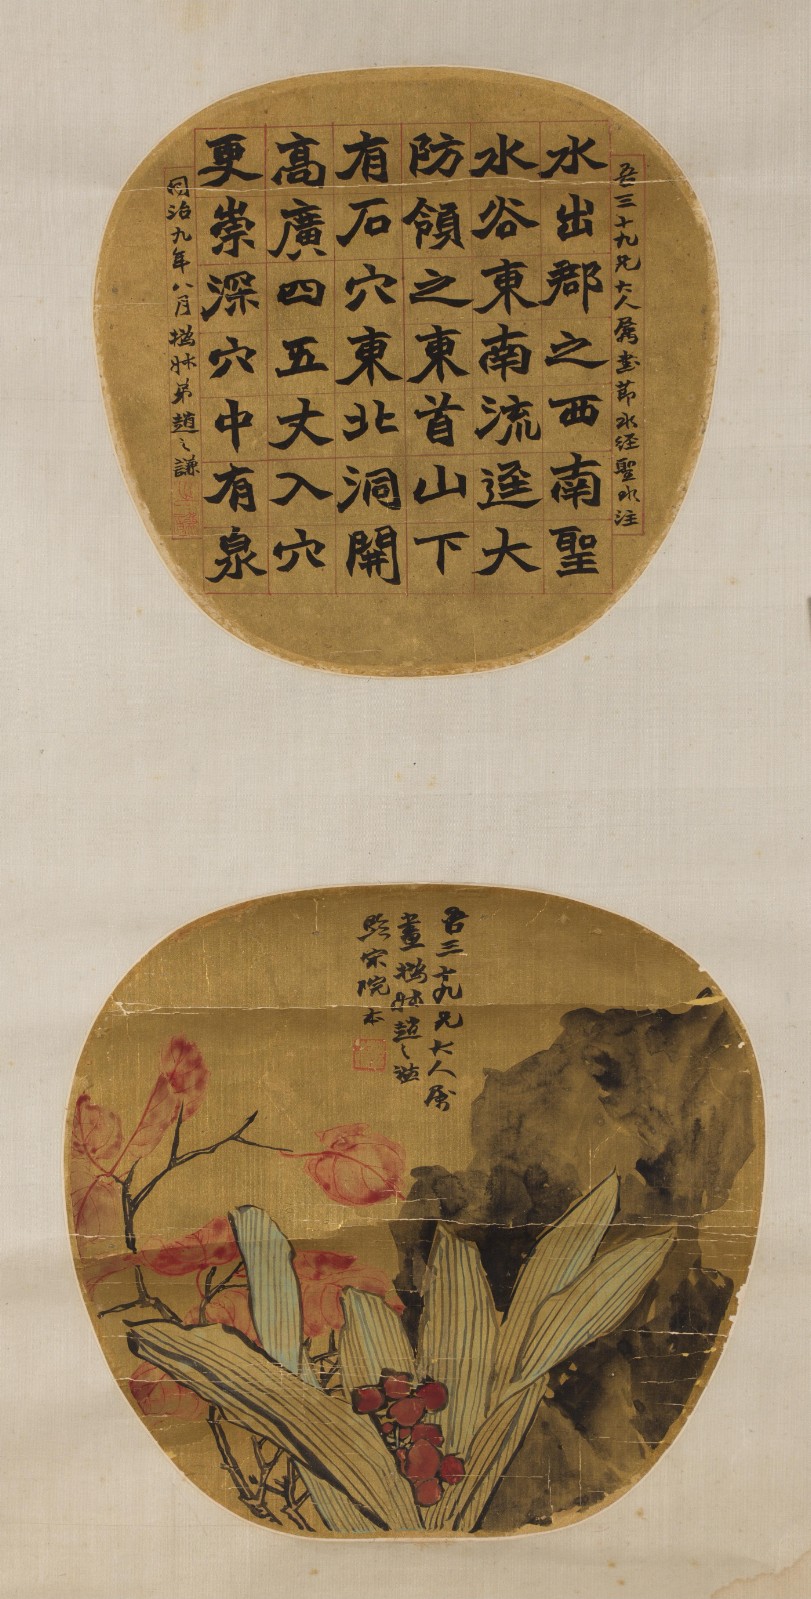 吾三十九兄大人屬書節水經聖水注
水出郡之西南聖
水谷東南流逕大
防領之東首山下
有石穴東北洞開
高廣四五丈入穴
更崇深穴中有泉
同治九年八月撝叔弟趙之謙
吾三十九兄大人屬
畫撝叔趙之謙
宋院本